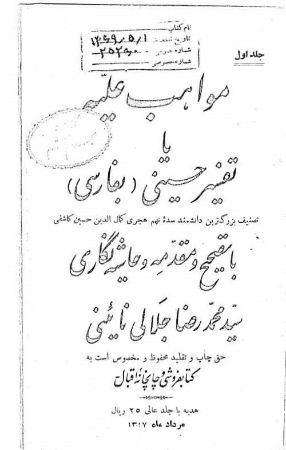 جلد اول
نام کتاب
تاریخ
شماره عمومی
شماره خصوصی
مواهب علیّه
یا
تفسیر حسینی (بفارسی)
تصنیف بزرگترین دانشمند سدهٔ نهم هجری کمال الدین حسین کاشفی
با تصحیح و مقدمه و حاشیه نگاری
سیّد محمد رضا جلالی نائینی
حق چاپ و تقلید محفوظ و مخصوص است به
کتابفروشی و چاپخانه اقبال
هدیه با جلد عالی ۲۵ ریال
مرداد ماه ۱۳۱۷